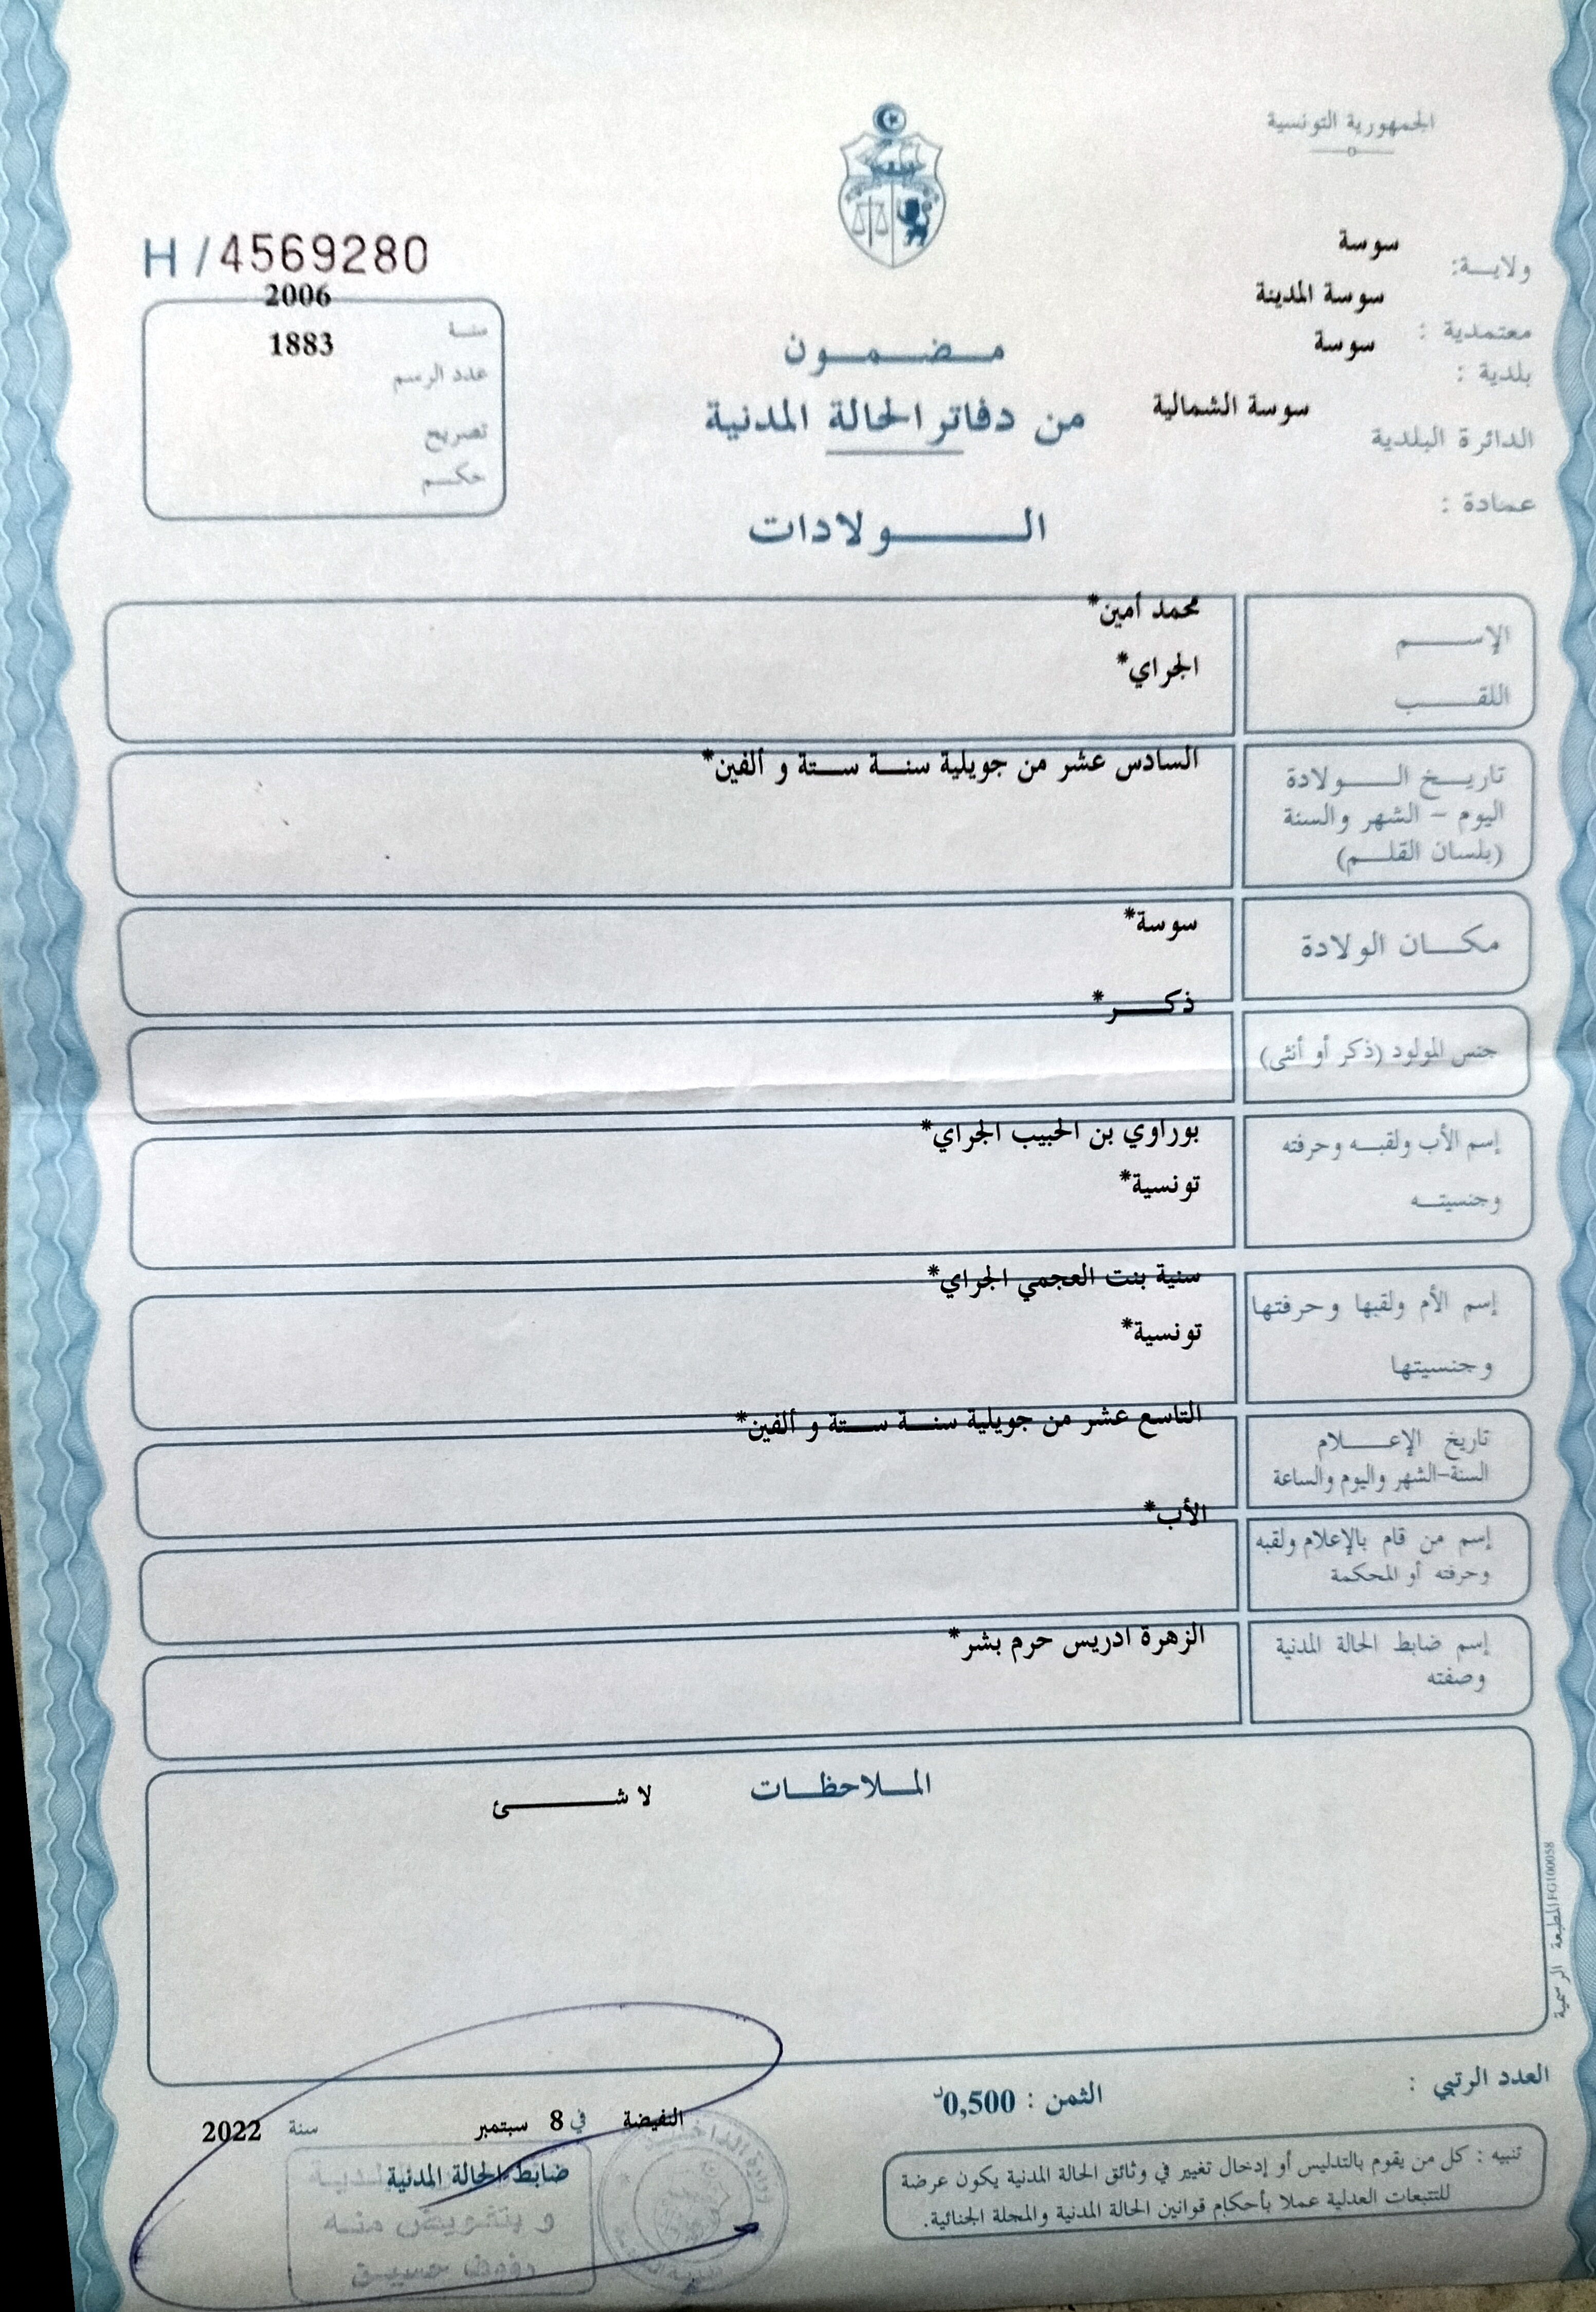 الجمهورية التونسية
ولايـــة: سوسة
معتمدية : سوسة المدينة
بلدية : سوسة
الدائرة البلدية سوسة الشمالية
عمادة :
H / 4569280
سنة 2006
عدد الرسم 1883
تصريح
حكم
مضمون
من دفاتر الحالة المدنية
الولادات
الإسم محمد أمين*
اللقب الجراي*
تاريخ الولادة السادس عشر من جويلية سنة ستة و ألفين*
اليوم - الشهر والسنة
(بلسان القلم)
مكان الولادة سوسة*
جنس المولود (ذكر أو أنثى) ذكر*
إسم الأب ولقبه وحرفته بوراوي بن الحبيب الجراي*
وجنسيته تونسية*
إسم الأم ولقبها وحرفتها سنية بنت العجمي الجراي*
وجنسيتها تونسية*
تاريخ الإعلام التاسع عشر من جويلية سنة ستة و ألفين*
السنة-الشهر واليوم والساعة
إسم من قام بالإعلام ولقبه الأب*
وحرفته أو المحكمة
إسم ضابط الحالة المدنية الزهرة ادريس حرم بشر*
وصفته
الملاحظات لا شئ
المطبعة الرسمية FG100058
العدد الرتبي :
الثمن : 0,500د
النفيضة في 8 سبتمبر سنة 2022
ضابط الحالة المدنية
و بتفويض منه
رؤوف حسيـق
تنبيه : كل من يقوم بالتدليس أو إدخال تغيير في وثائق الحالة المدنية يكون عرضة
للتتبعات العدلية عملا بأحكام قوانين الحالة المدنية والمجلة الجنائية.